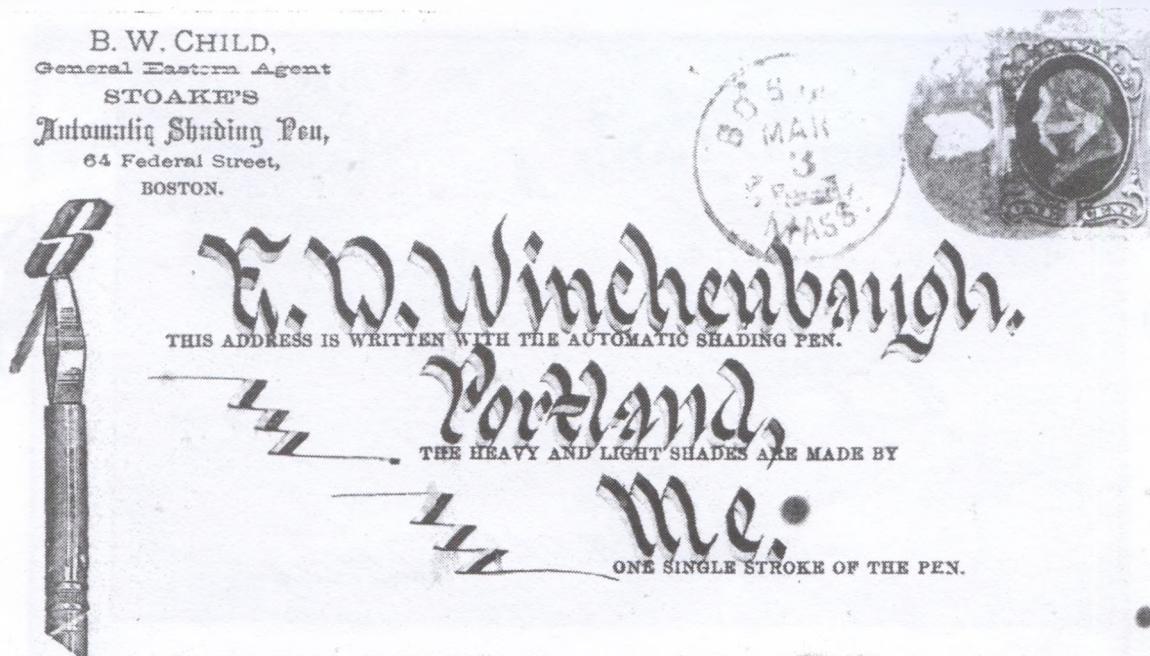 B. W. CHILD,
General Eastern Agent
STOAKE'S
Automatic Shading Pen,
64 Federal Street,
BOSTON.
MAR
3
MASS.
ONE CENT
E. D. Winchenbaugh.
THIS ADDRESS IS WRITTEN WITH THE AUTOMATIC SHADING PEN.
Portland,
THE HEAVY AND LIGHT SHADES ARE MADE BY
Me.
ONE SINGLE STROKE OF THE PEN.